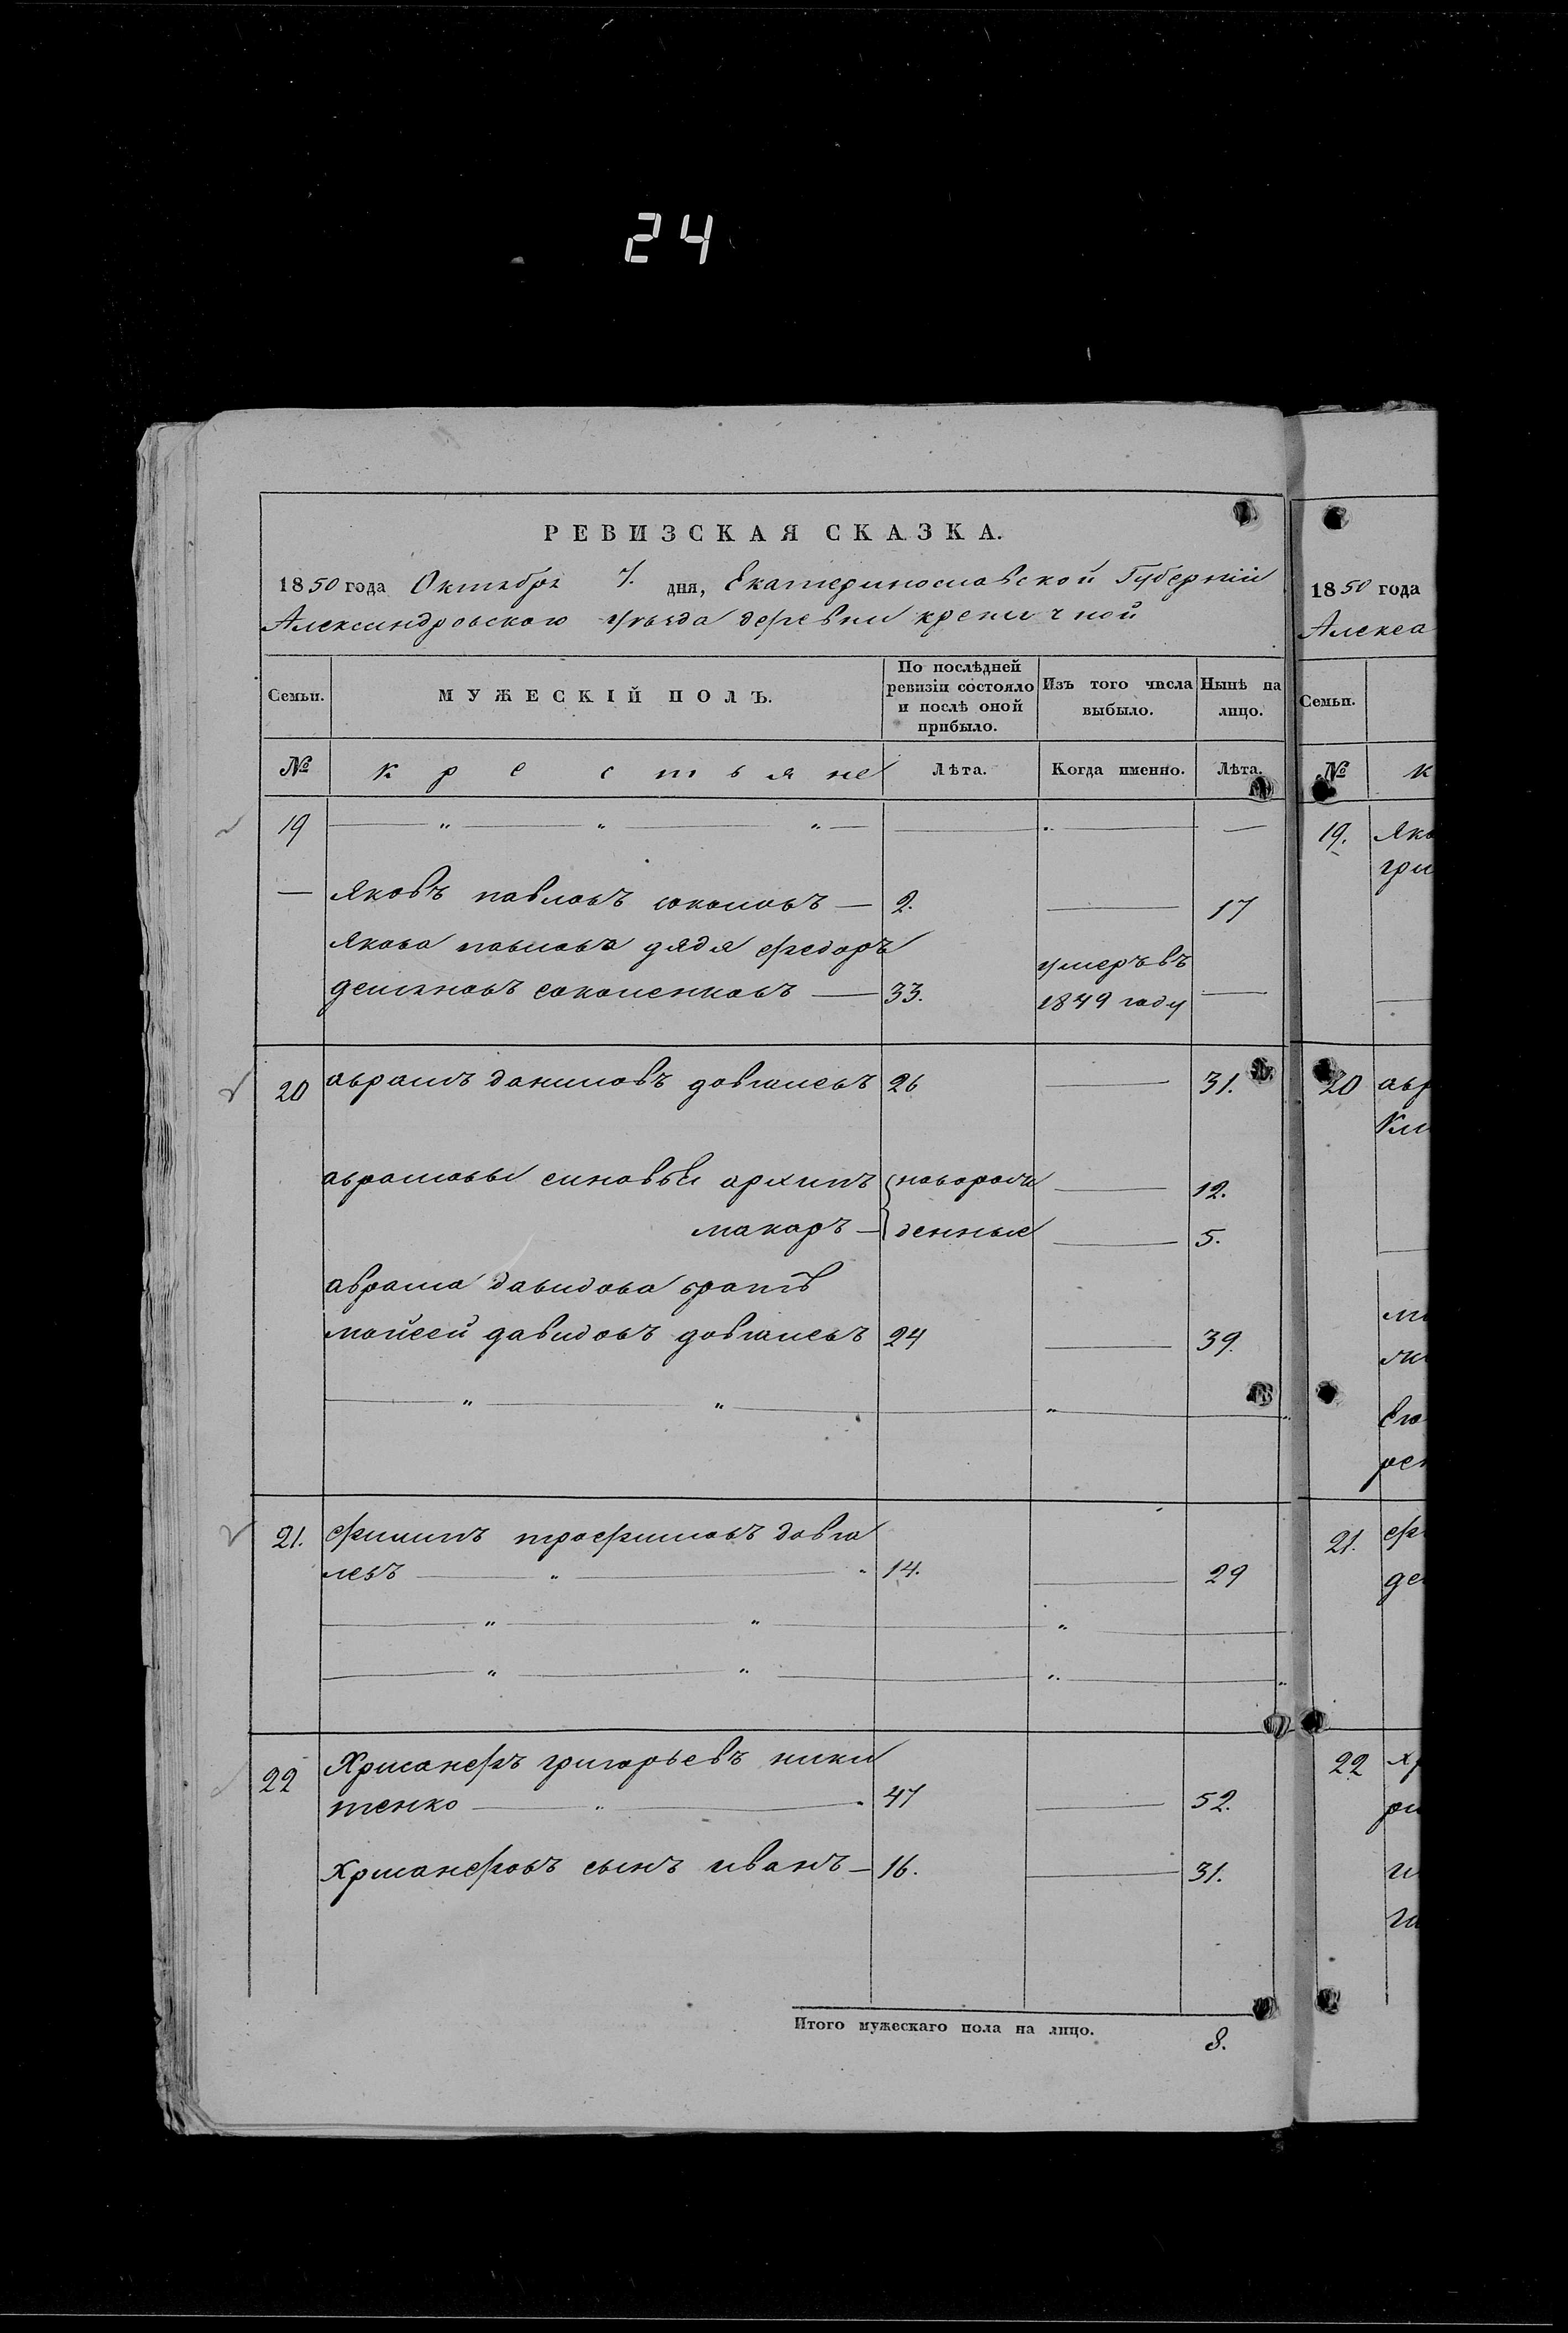 24
РЕВИЗСКАЯ СКАЗКА.
1850 года Октября 7. дня, Екатеринославской Губерніи
Александровского уѣзда деревни креничной
Семьи.
МУЖЕСКІЙ ПОЛЪ.
По послѣдней ревизіи состояло и послѣ оной прибыло.
Изъ того числа выбыло.
Нынѣ на лицо.
№ крестьяне Лѣта. Когда именно. Лѣта.
19 — " — " — " — " —
— Яковъ павловъ — 2. — 17
Якова павлова дядя федоръ
демяновъ соколенковъ — 33. умеръ въ 1849 году —
20 аврамъ довгалевъ 26 — 31.
аврамовы синовья архипъ новорож — 12.
макаръ — денные — 5.
аврама давидова братъ
мойсей давидовъ довгалевъ 24 — 39.
— " — " — " — "
21. филипъ трофимовъ довга
левъ — " — " 14. — 29
— " — " — " —
— " — " — " — "
22 Хрисанфъ григорьевъ ники
тенко — " — " 47 — 52.
Хрисанфовъ сынъ иванъ — 16. — 31.
Итого мужескаго пола на лицо. 8.
1850 года
Алекса
Семьи.
№ к
19. Яко
гри
20 авр
Кли
21. фи
де
22 хр
ри